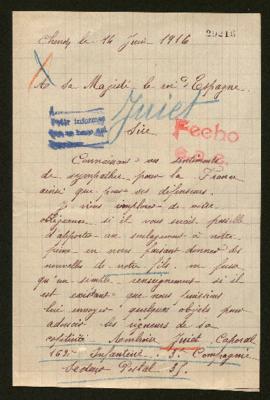 29216
le 14 Juin 1916
A sa Majesté le roi d'Espagne
Juiet
Sire
Pedir informes
Fecho
Connaissant vos sentiments
de sympathie pour la France
ainsi que pour ses défenseurs.
Je viens implorer de votre
si il vous serait possible
d'apporter un soulagement à notre
peine en nous faisant donner des
nouvelles de notre fils, en
qu'un simple renseignement si il
est existant que nous puissions
lui envoyer quelques objets pour
adoucir les rigueurs de sa
captivité Juiet Caporal
Infanterie Compagnie
Secteur Postal